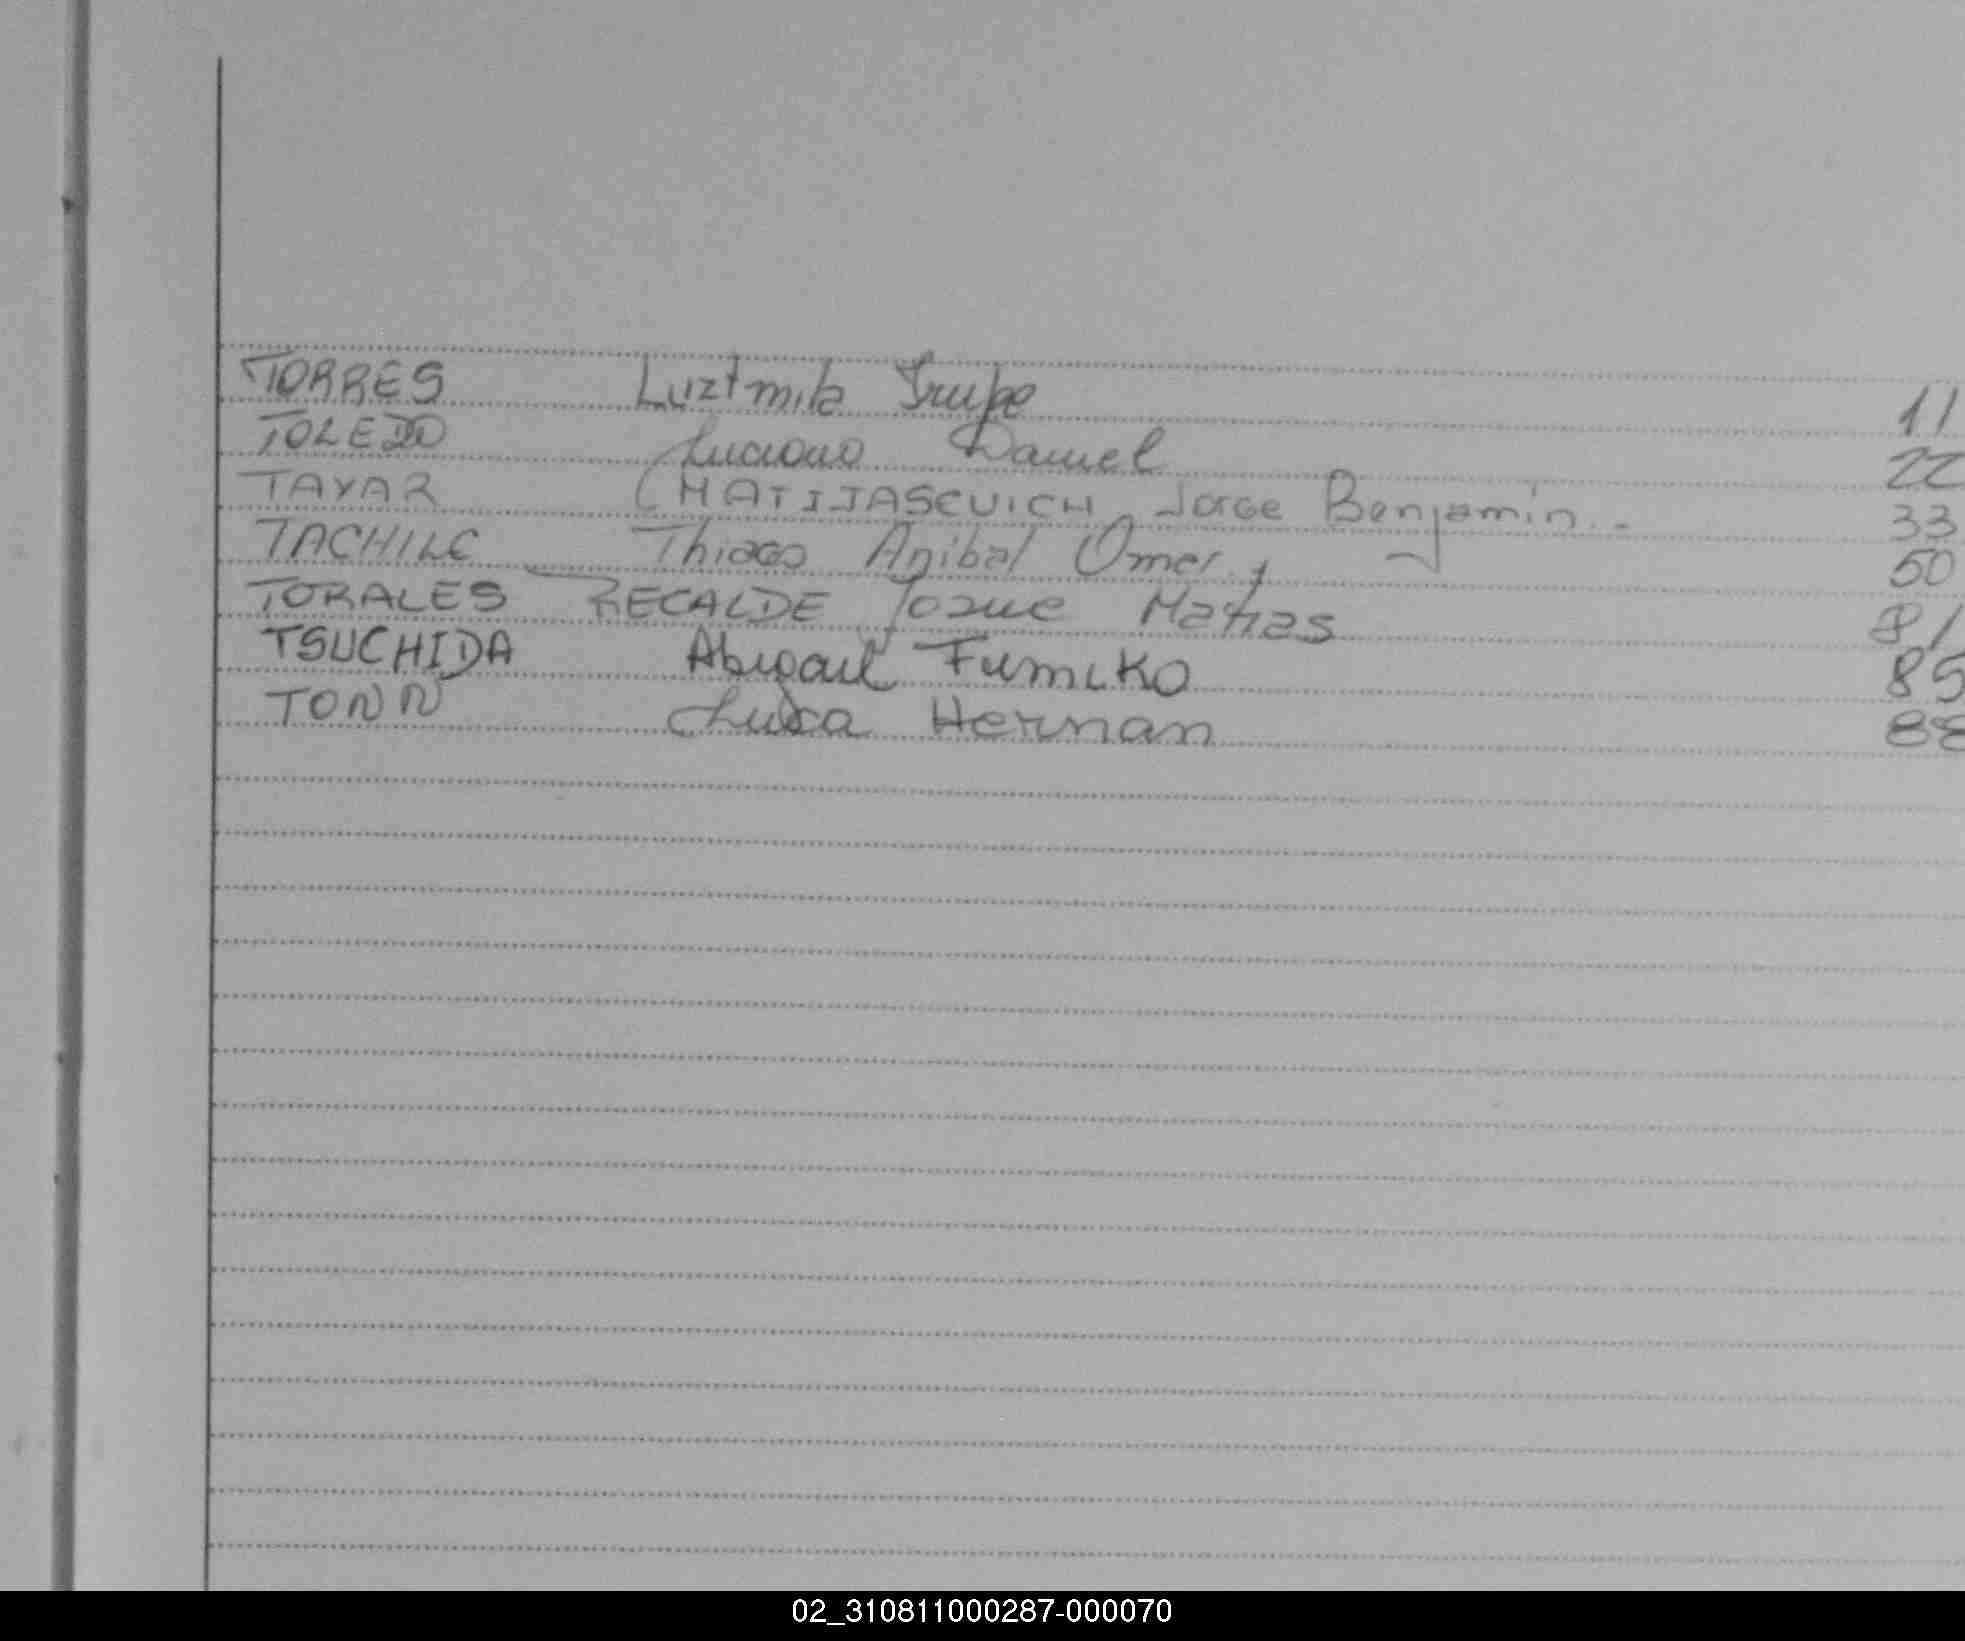 TORRES Luztmila Irupe 11
TOLEDO Luciano Daniel 22
TAYAR MATIJASEVICH Jorge Benjamin.- 33
TACHILC Thiago Anibal Omer. 50
TORALES RECALDE Josue Matias 81
TSUCHIDA Abigail Fumiko 85
TONN Luka Hernan 88
02_310811000287-000070